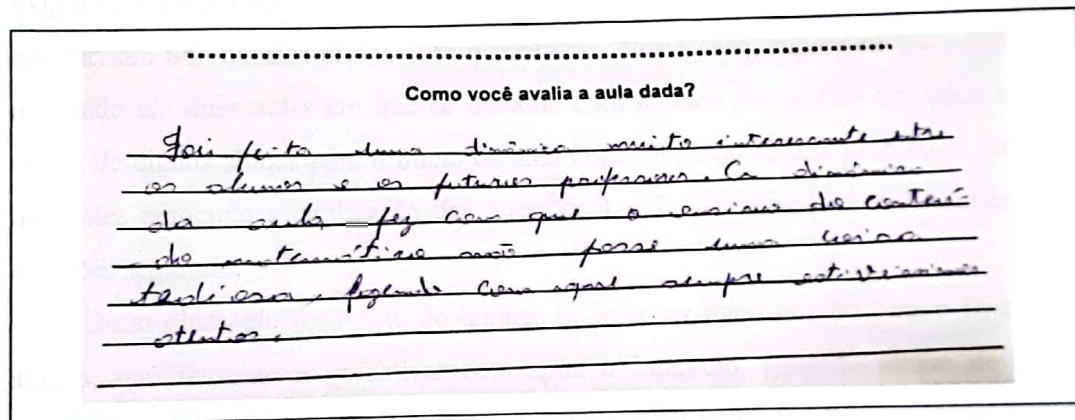 Como você avalia a aula dada?
Foi feita uma dinâmica muito interessante entre
os alunos e os futuros professores. Ca dinâmica
da aula fez com que o ensino do conteú-
do matemático não fosse uma coisa
tediosa, fazendo com que sempre estivéssemos
atentos.